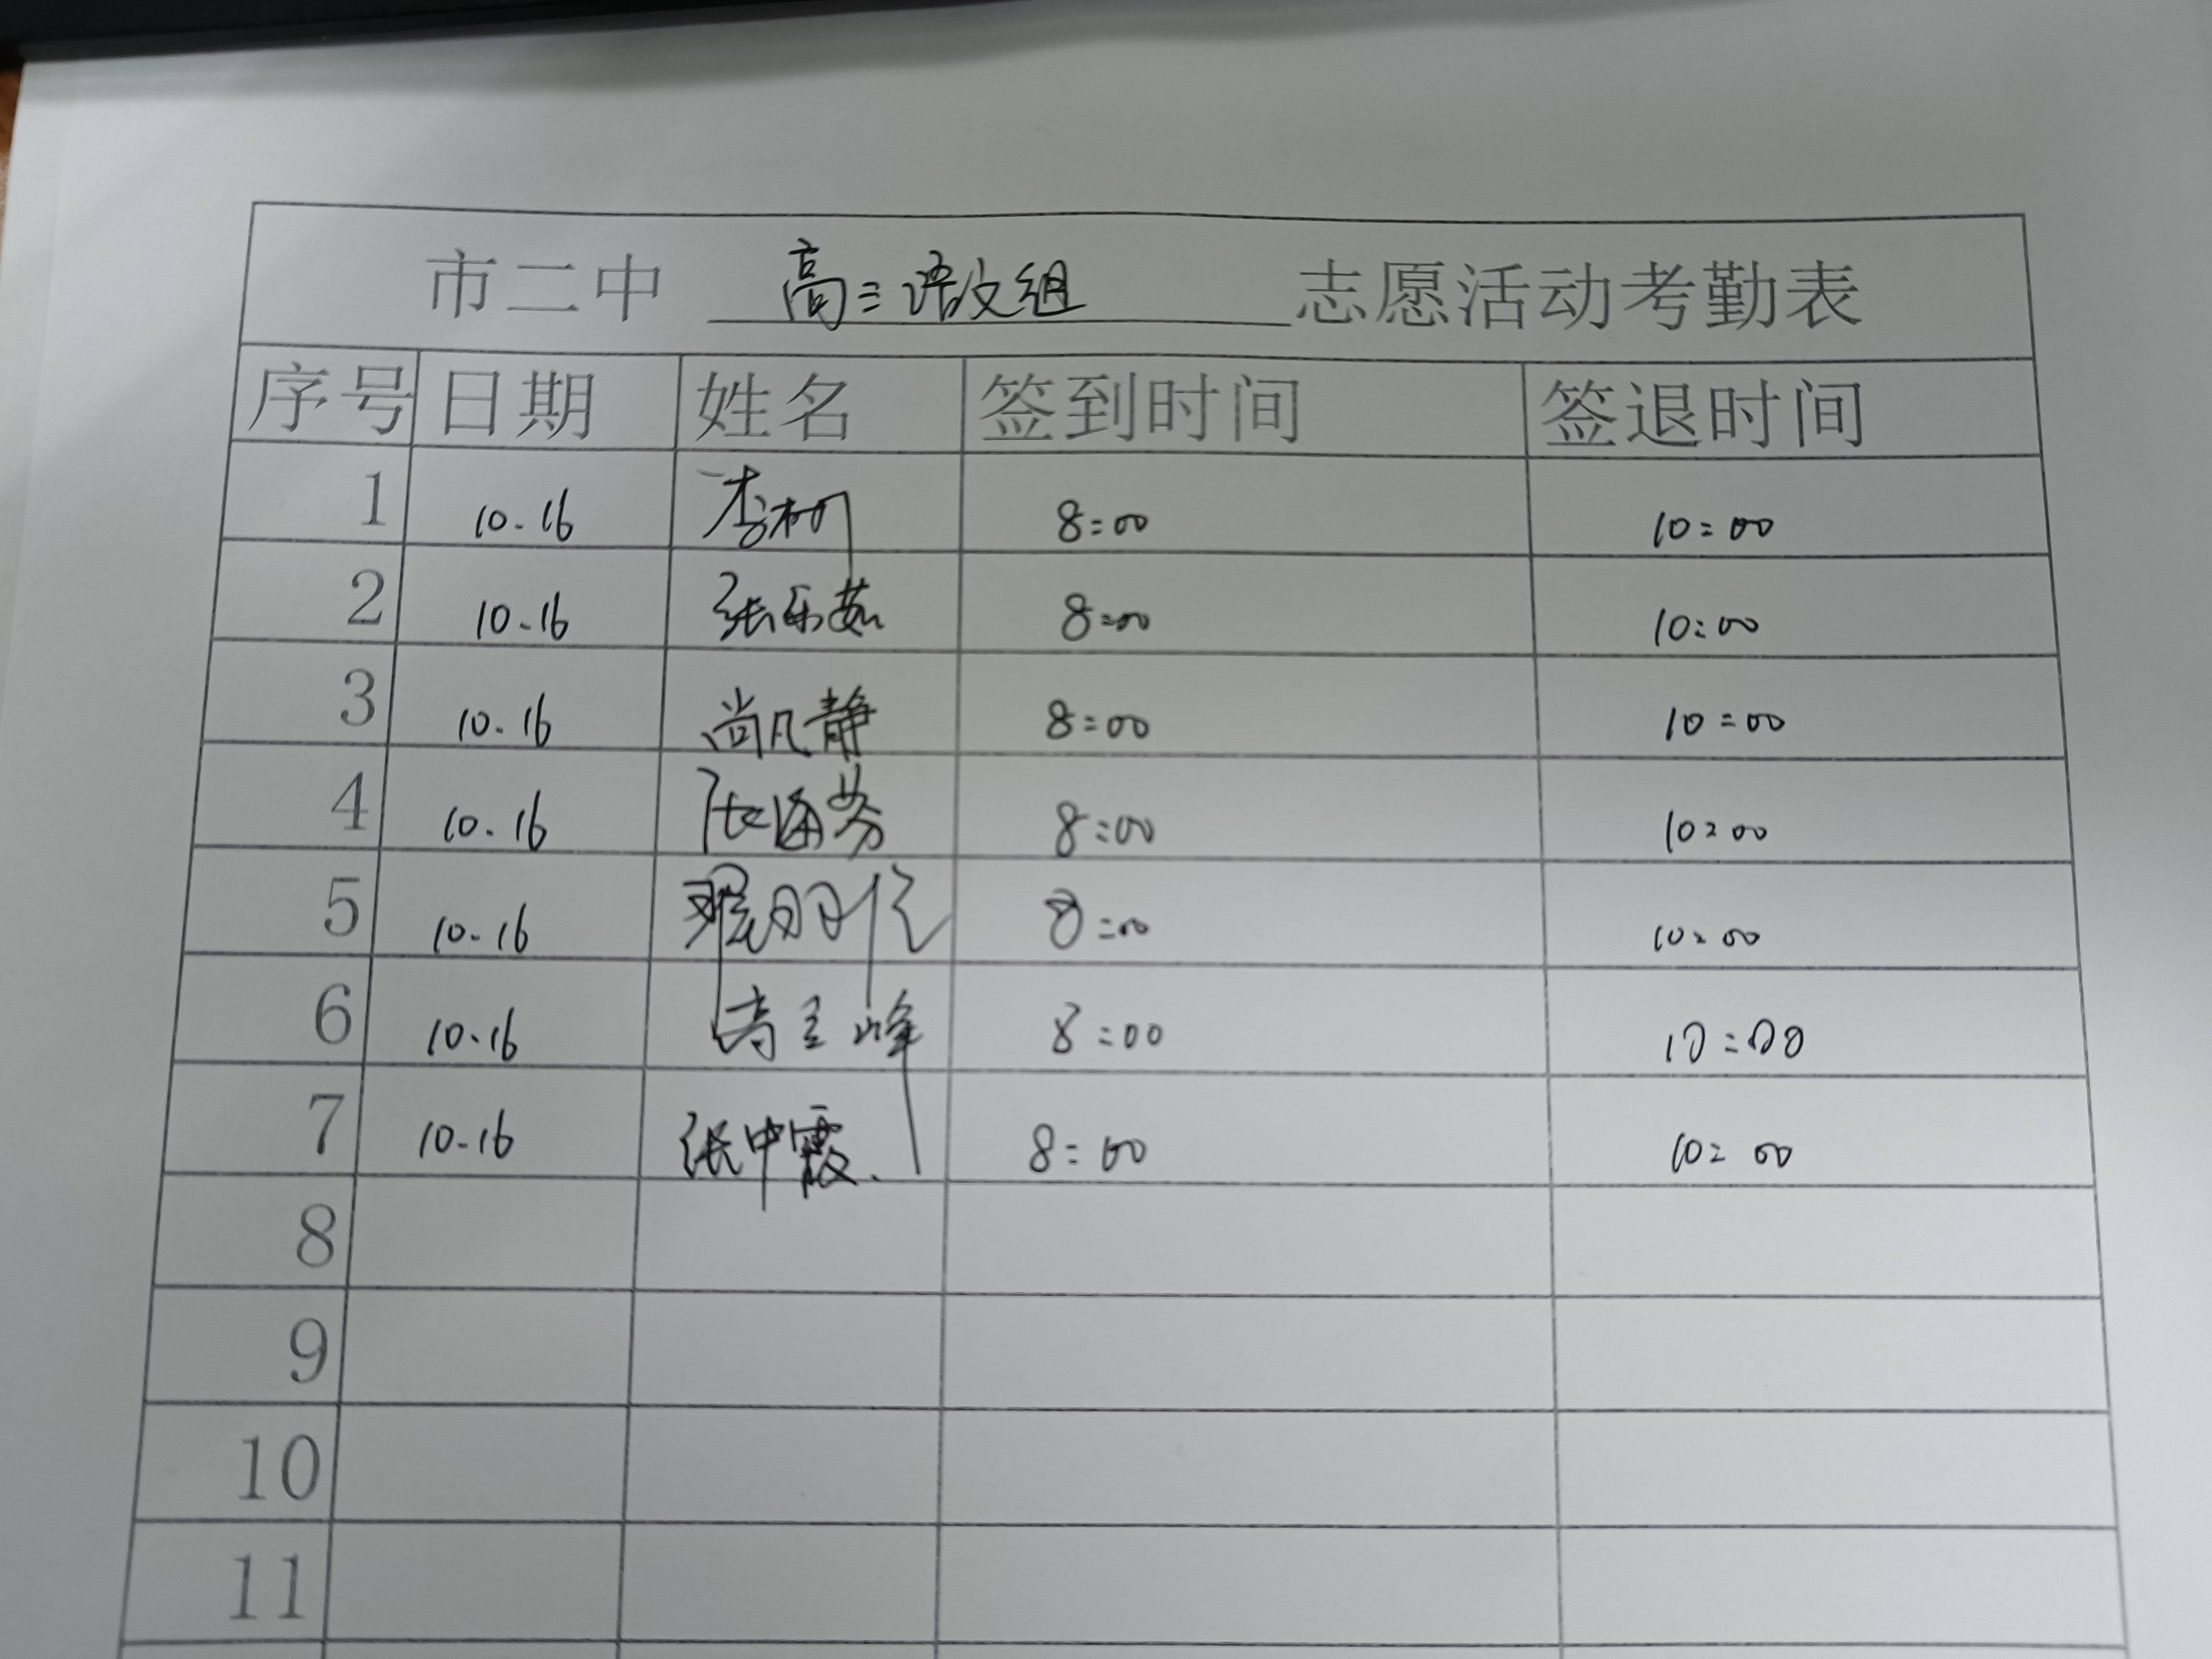 市二中 高三语文组 志愿活动考勤表
序号 日期 姓名 签到时间 签退时间
1 10.16 李树 8:00 10:00
2 10.16 张乐茹 8:00 10:00
3 10.16 尚凡静 8:00 10:00
4 10.16 张海芬 8:00 10:00
5 10.16 8:00 10:00
6 10.16 8:00 10:00
7 10.16 张中霞 8:00 10:00
8
9
10
11